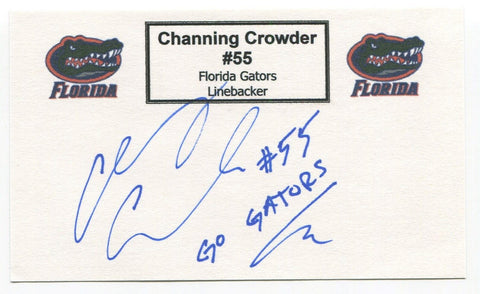 Channing Crowder
#55
Florida Gators
Linebacker
FLORIDA
FLORIDA
#55
GO GATORS